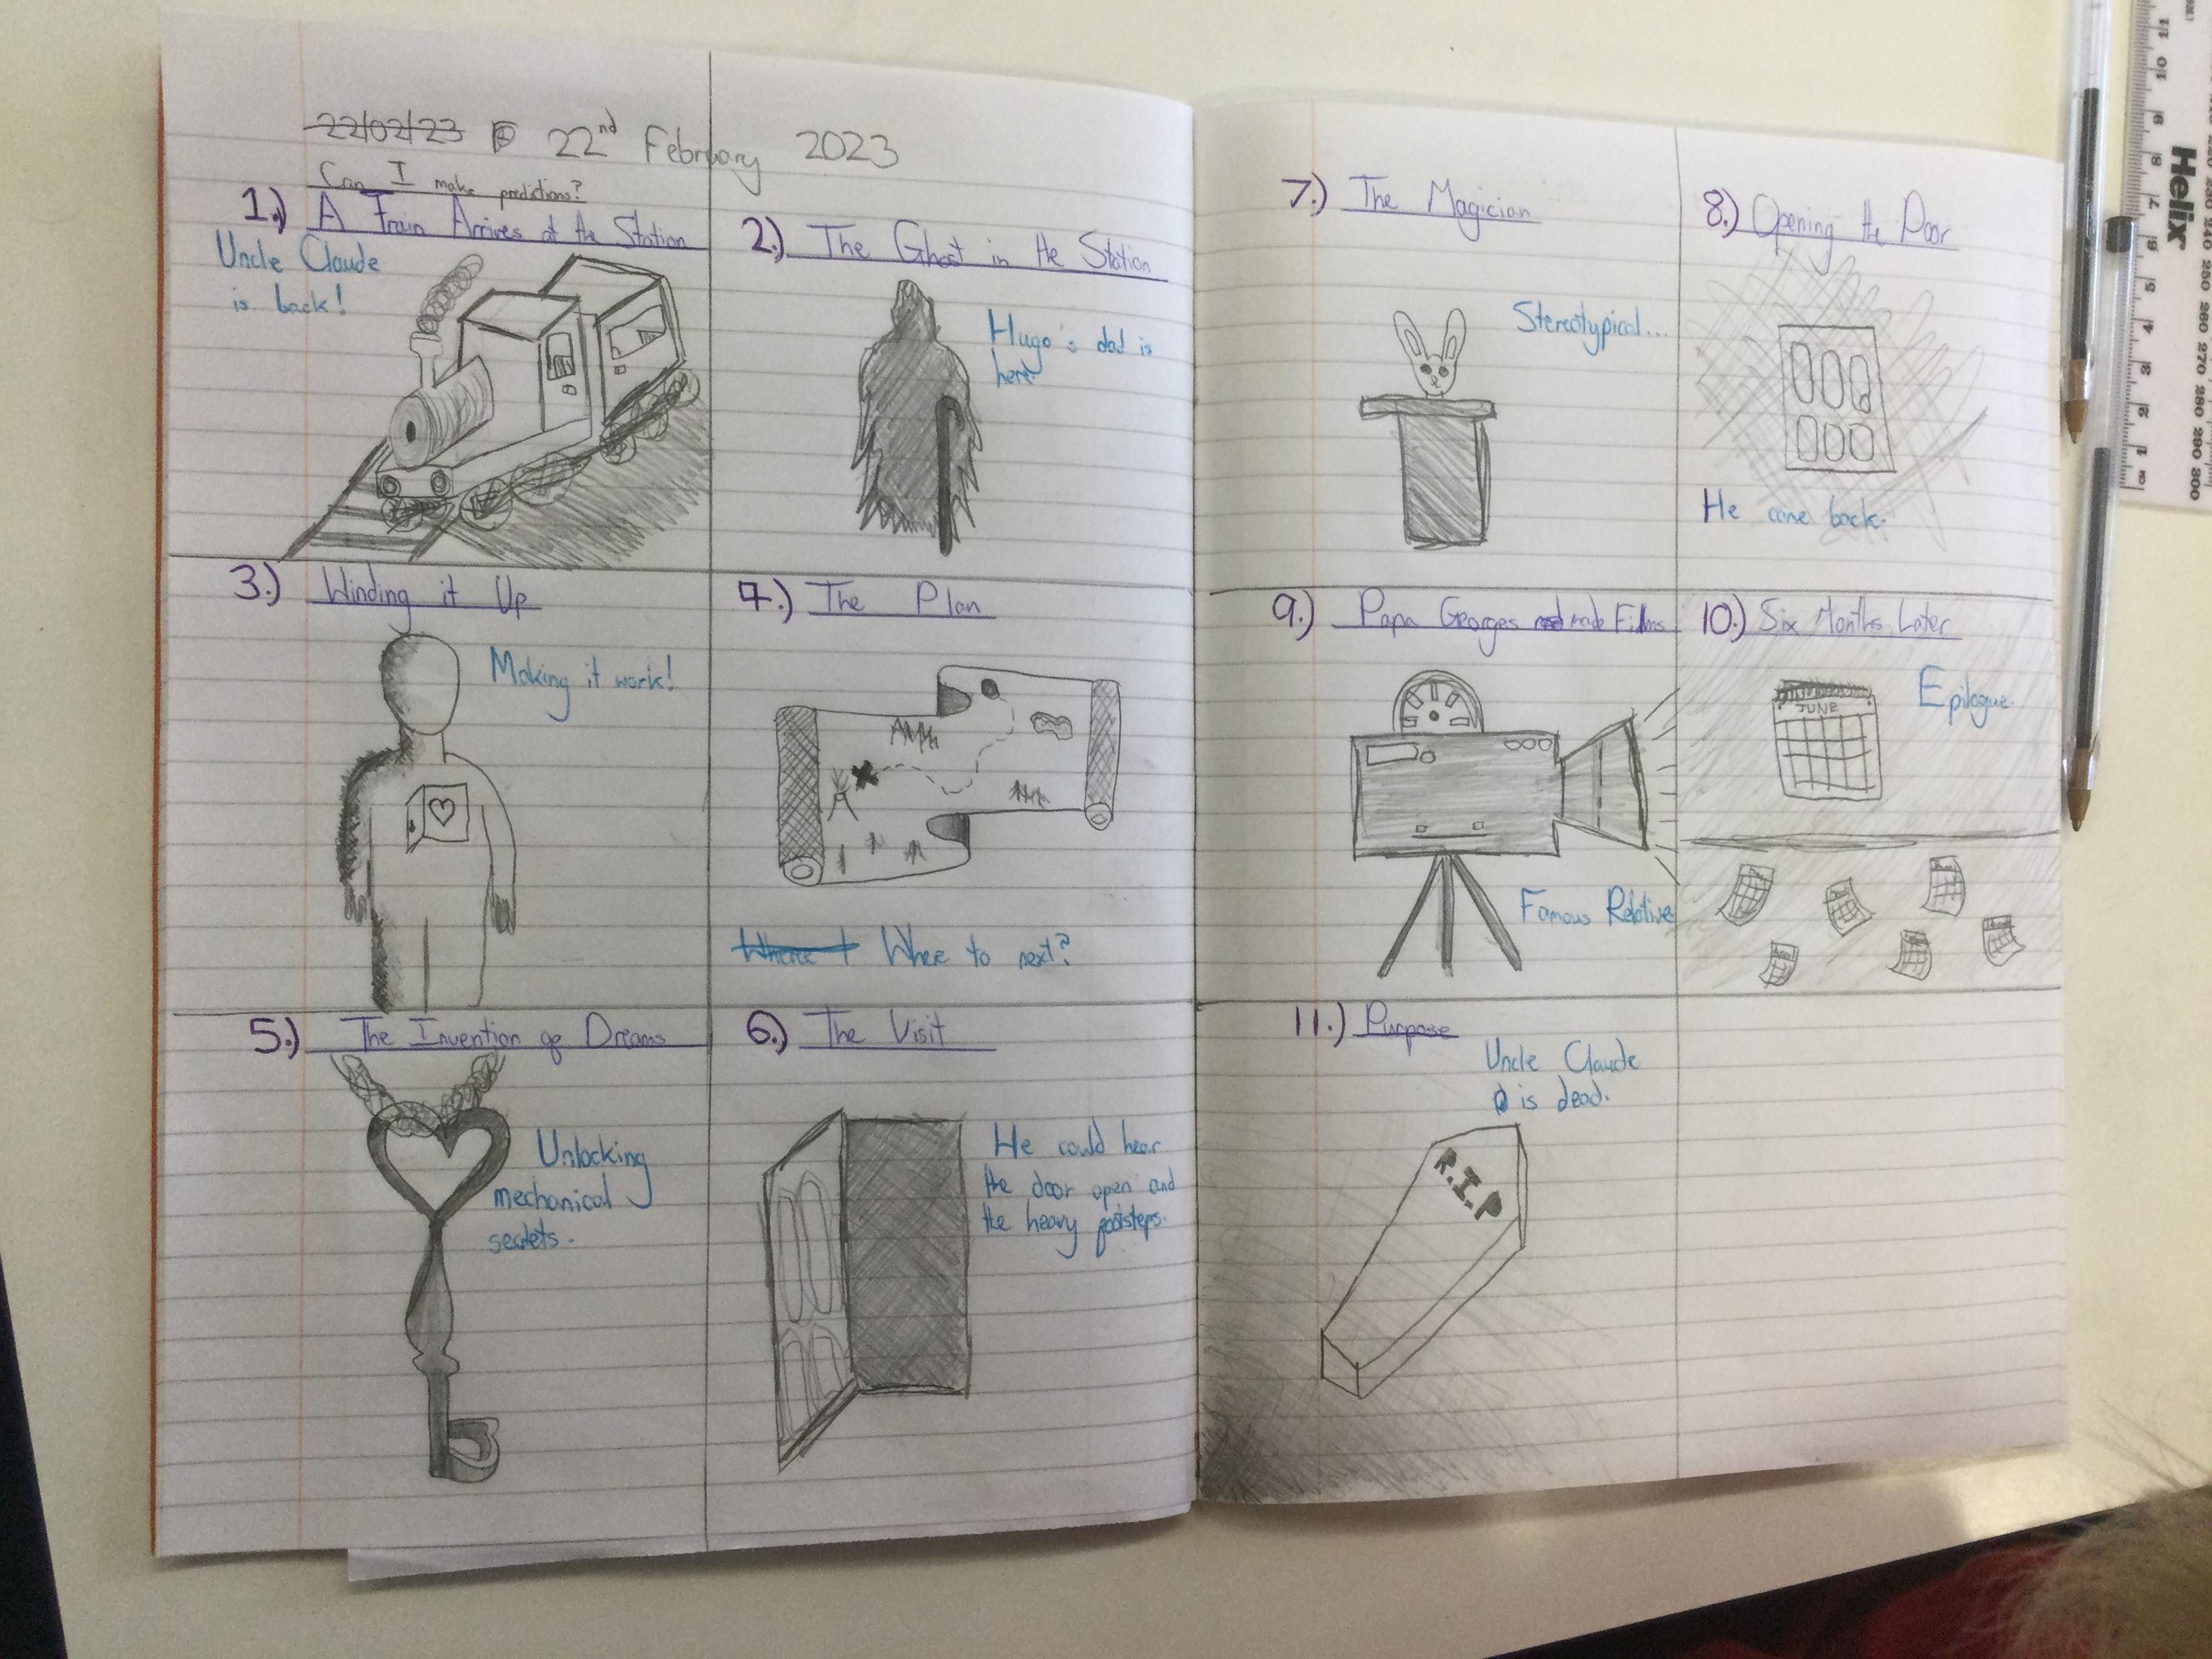 22/02/23 22nd February 2023
Can I make predictions?
1.) A Train Arrives at the Station
Uncle Claude
is back!
2.) The Ghost in the Station
Hugo's dad is
here.
3.) Winding it Up
Making it work!
4.) The Plan
Where to next?
5.) The Invention of Dreams
Unlocking
mechanical
secrets.
6.) The Visit
He could hear
the door open and
the heavy footsteps.
7.) The Magician
Stereotypical...
8.) Opening the Door
He came back.
9.) Papa Georges made Films
Famous Relative.
10.) Six Months Later
JUNE
Epilogue.
11.) Purpose
Uncle Claude
is dead.
R.I.P
Helix
11
10
9
8
7
6
5
4
3
2
1
240
250
260
270
280
290
300